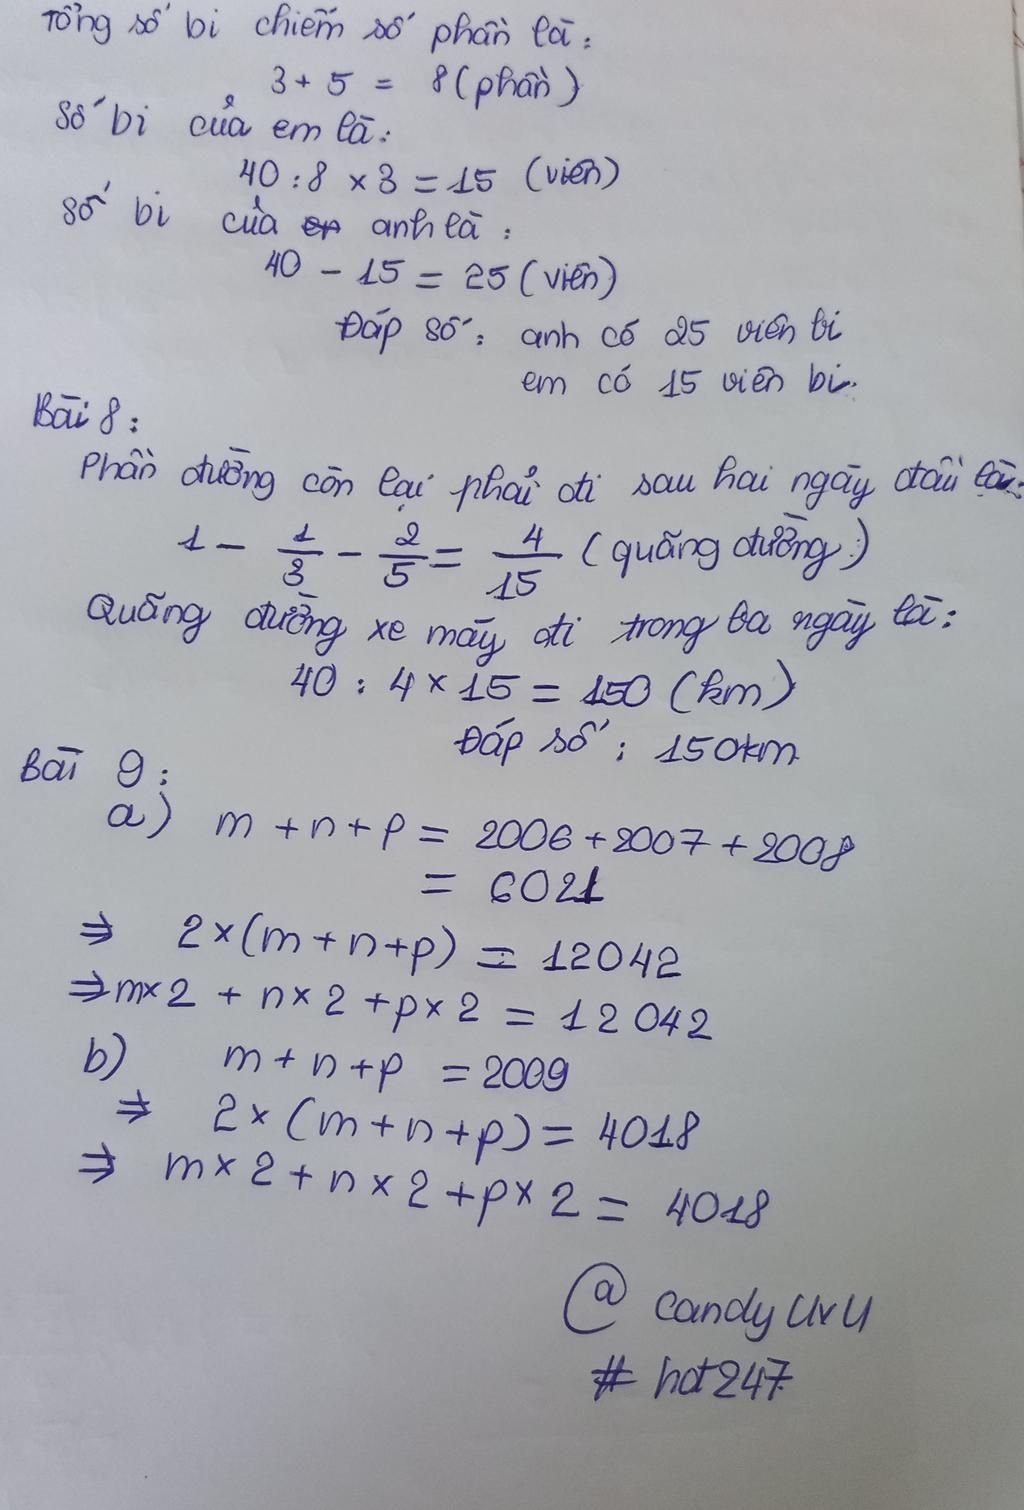 Tổng số bi chiếm số phần là:
3 + 5 = 8 (phần)
Số bi của em là:
40 : 8 × 3 = 15 (viên)
Số bi của anh là:
40 - 15 = 25 (viên)
Đáp số: anh có 25 viên bi
em có 15 viên bi.
Bài 8:
Phần đường còn lại phải đi sau hai ngày đầu là:
1 - 1/3 - 2/5 = 4/15 (quãng đường)
Quãng đường xe máy đi trong ba ngày là:
40 : 4 × 15 = 150 (km)
Đáp số: 150km
Bài 9:
a) m + n + p = 2006 + 2007 + 2008
= 6021
⇒ 2 × (m + n + p) = 12042
⇒ m × 2 + n × 2 + p × 2 = 12042
b) m + n + p = 2009
⇒ 2 × (m + n + p) = 4018
⇒ m × 2 + n × 2 + p × 2 = 4018
@ candy UvU
# hot247